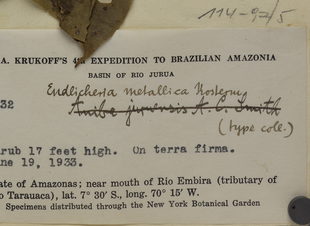 114-97/5
A. KRUKOFF'S 4th EXPEDITION TO BRAZILIAN AMAZONIA
BASIN OF RIO JURUA
Endlicheria metallica Kosterm.
32
Aniba juruensis A. C. Smith
(type coll.)
rub 17 feet high. On terra firma.
ne 19, 1933.
ate of Amazonas; near mouth of Rio Embira (tributary of
o Tarauaca), lat. 7° 30' S., long. 70° 15' W.
Specimens distributed through the New York Botanical Garden